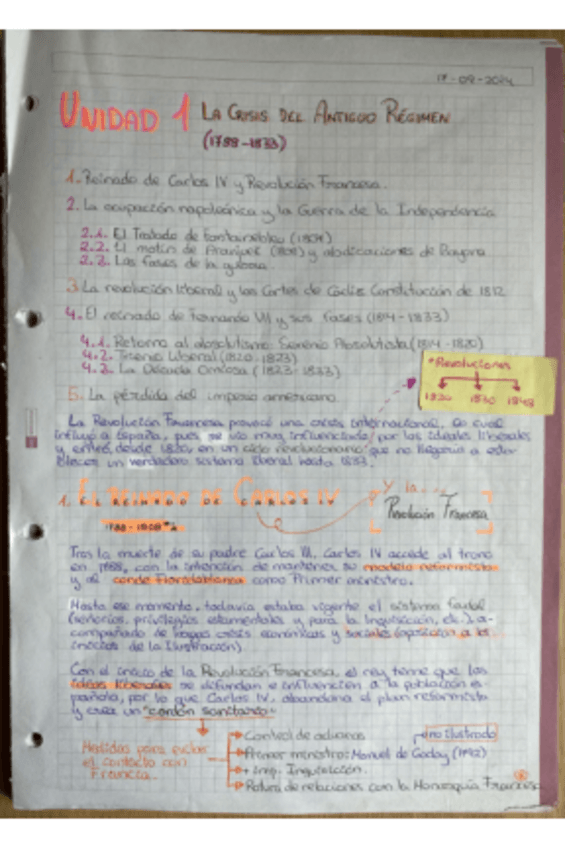 17-09-2024
UNIDAD 1 LA CRISIS DEL ANTIGUO RÉGIMEN
(1788-1833)
1. Reinado de Carlos IV y Revolución Francesa.
2. La ocupación napoleónica y la Guerra de la Independencia
2.1. El Tratado de Fontainebleu (1807)
2.2. El motín de Aranjuez (1808) y abdicaciones de Bayona
2.3. Las fases de la guerra
3. La revolución liberal y las Cortes de Cádiz. Constitución de 1812
4. El reinado de Fernando VII y sus fases (1814-1833)
4.1. Retorno al absolutismo: Sexenio Absolutista (1814-1820)
4.2. Trienio Liberal (1820-1823)
4.3. La Década Ominosa (1823-1833)
*Revoluciones
1820 1830 1848
5. La pérdida del imperio americano.
La Revolución Francesa provocó una crisis internacional, lo cual
influyó a España, pues se vio muy influenciada por los ideales liberales
y entró, desde 1820, en un ciclo revolucionario que no llegaría a estar
blecer un verdadero sistema liberal hasta 1833.
1. EL REINADO DE CARLOS IV y la...
Revolución Francesa
1788-1808
Tras la muerte de su padre Carlos III, Carlos IV accede al trono
en 1788, con la intención de mantener su modelo reformista
y al conde Floridablanca como Primer ministro.
Hasta ese momento, todavía estaba vigente el sistema feudal
(señoríos, privilegios estamentales y para la Inquisición, etc.) a-
compañado de crisis económicas y sociales (oposición a los
inicios de la Ilustración)
Con el inicio de la Revolución Francesa, el rey teme que las
ideas liberales se difundan e influencien a la población es-
pañola, por lo que Carlos IV, abandona el plan reformista
y crea un "cordón sanitario".
Medidas para evitar
el contacto con
Francia.
Control de aduanas
no ilustrado
Primer ministro: Manuel de Godoy (1792)
+ imp. Inquisición.
Rotura de relaciones con la Monarquía Francesa